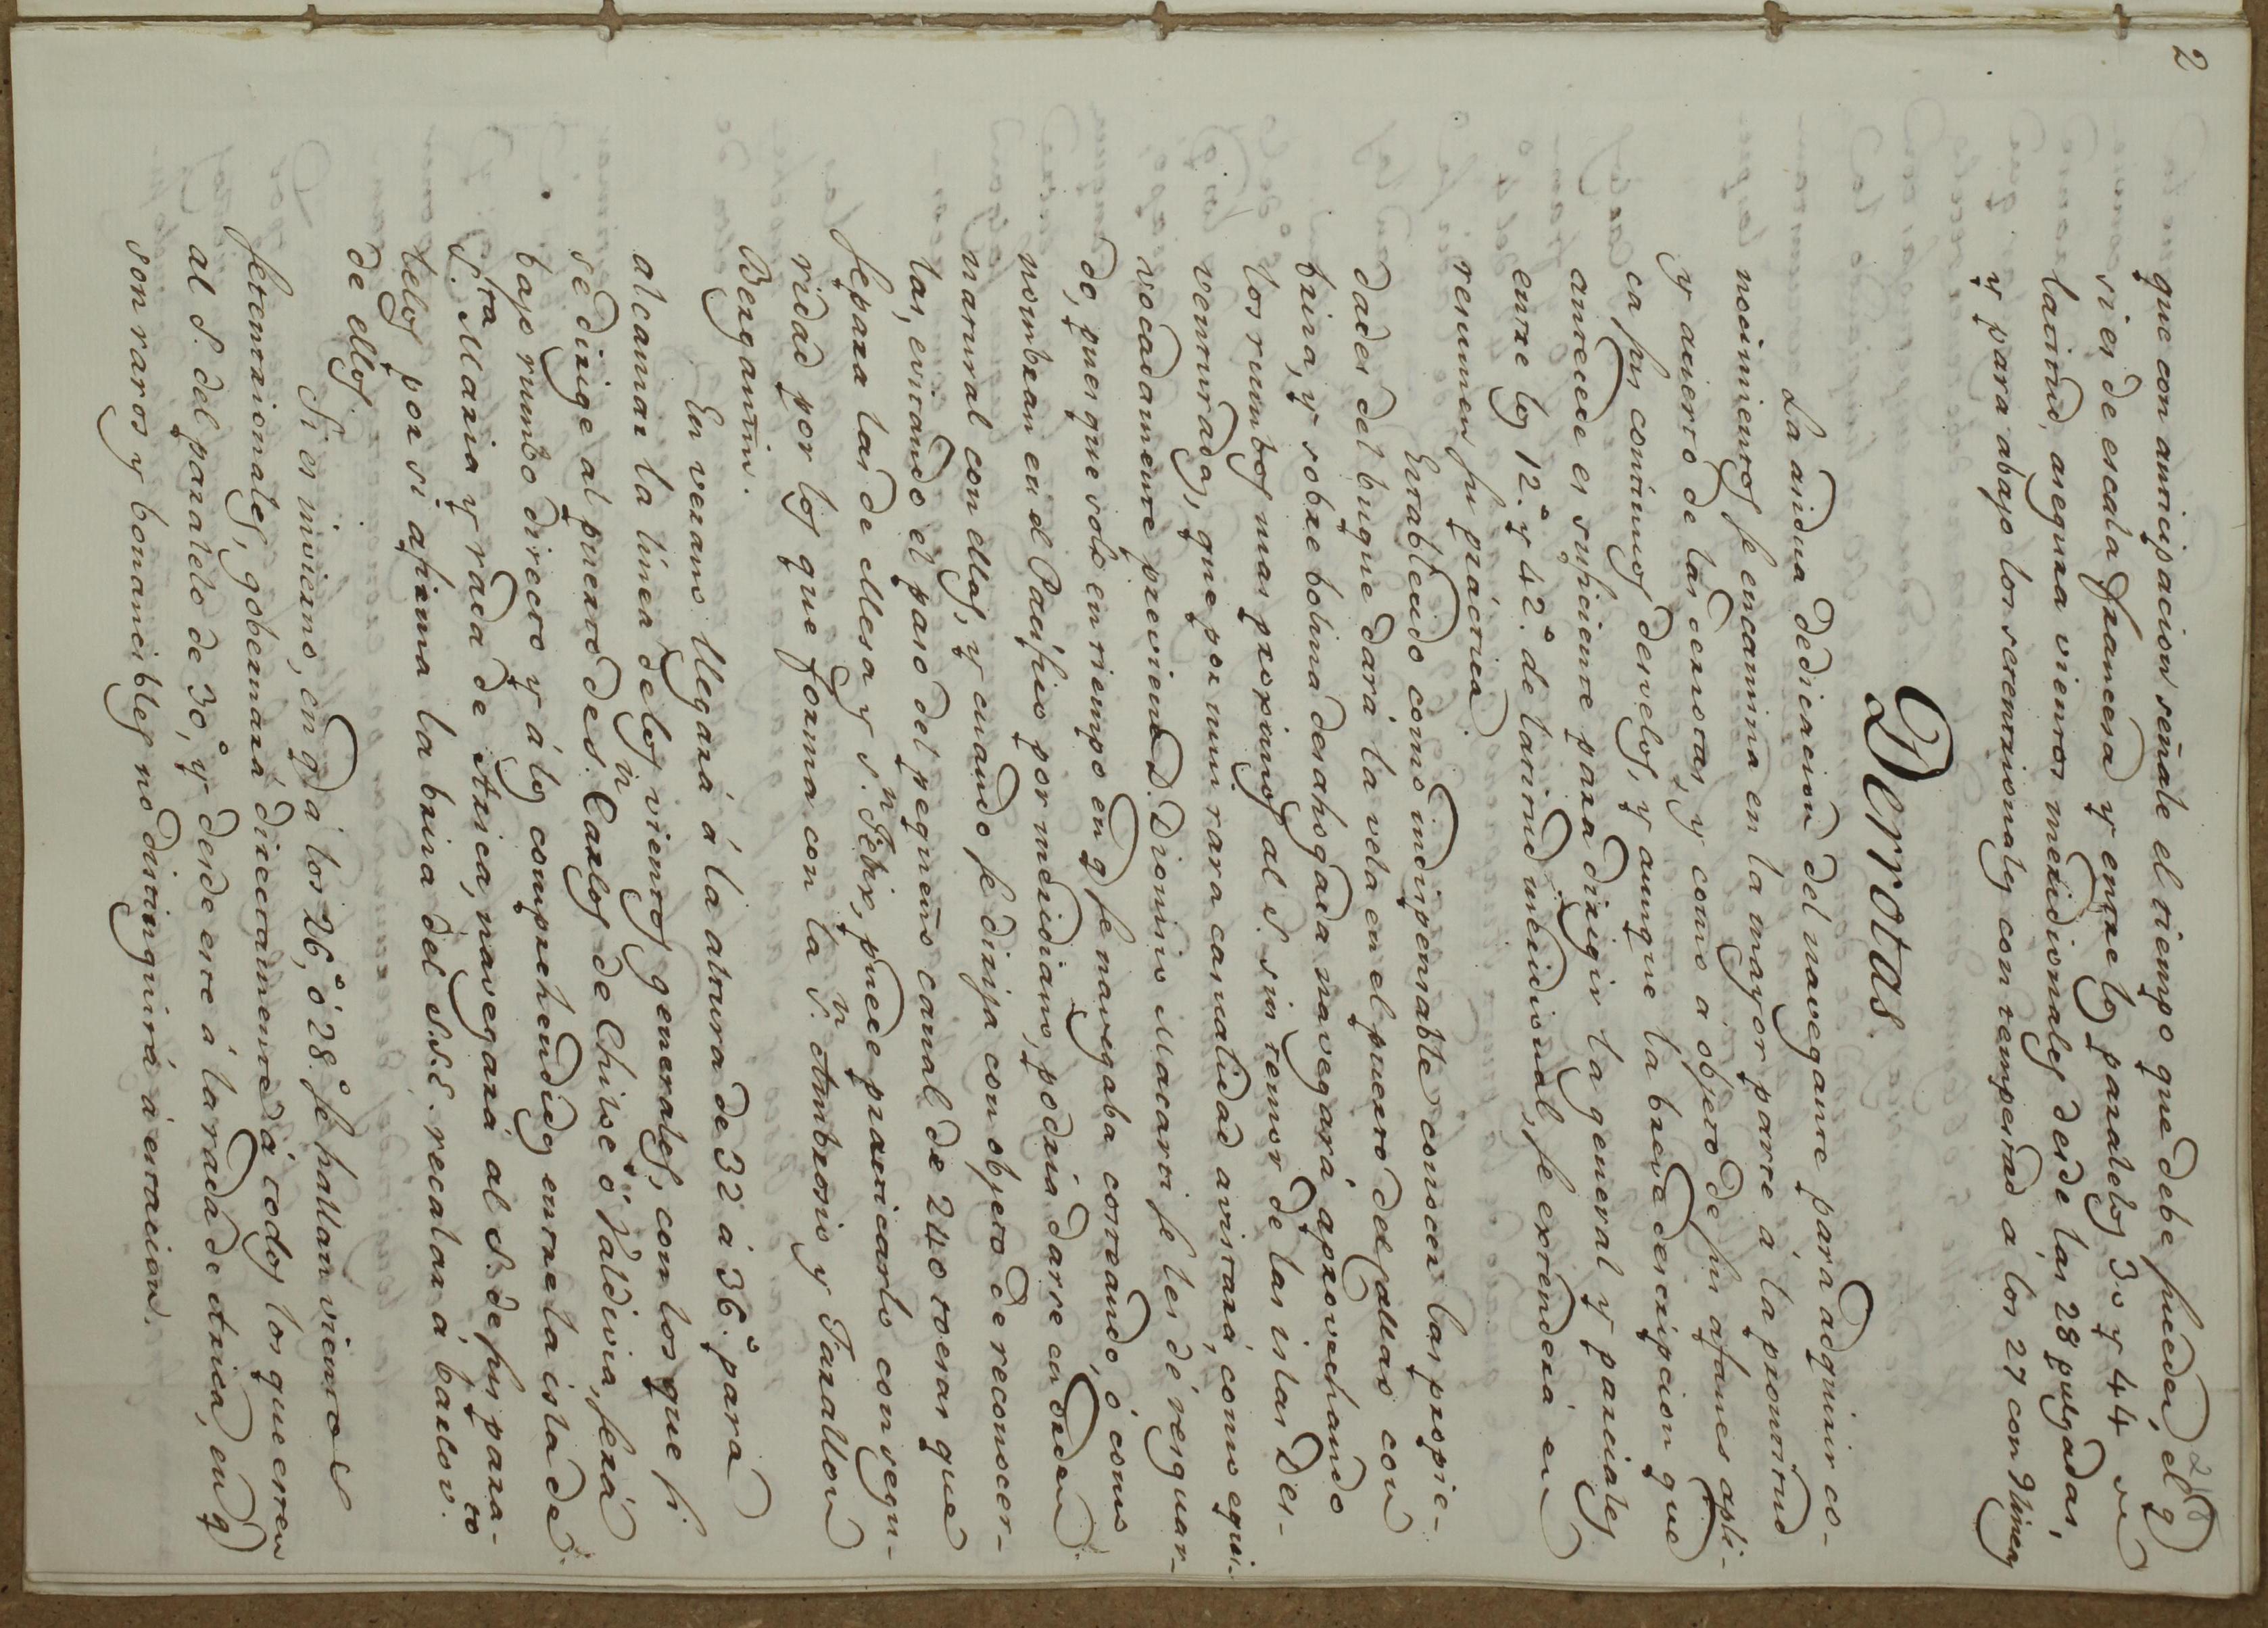 2
28
que con anticipacion señale el tiempo que debe suceder, el q
si es de escala francesa y entre los paralelos 30 y 44 en
latitud, asegura vientos meridionales desde las 28 pulgadas,
y para abajo los setentrionales con tempestad a los 27 con 9 lineas
Derrotas.
La asidua dedicacion del navegante para adquirir co-
nocimientos se encamina en la mayor parte á la prontitud
y acierto de las derrotas, y como a objeto de sus afanes apli-
ca sus continuos desvelos, y aunque la breve descripcion que
antecede es suficiente para dirigir la general y parciales
entre los 12.° y 42.° de latitud meridional, se extenderá en
resumen su práctica.
Establecido como indispensable conocer las propie-
dades del buque dará la vela en el puerto del Callao con
brisa, y sobre bolina desahogada navegará, aprovechando
los rumbos mas proximos al S. sin temor de las islas Des-
venturadas, que por una rara casualidad avistará, como equi-
vocadamente previene D. Dionisio Macarti se les dé resguar-
do, pues que solo en tiempo en q se navegaba correando, ó como
nombran en el Pacifico por meridiano, podria darse en orden
natural con ellas, y cuando se dirija con objeto de reconocer-
las, evitando el paso del pequeño canal de 240 toesas que
separa las de Mesa y S.n Felix, puede practicarlo con segu-
ridad por los que forma con la S.n Ambrosio y Farallon
Bergantin.
En verano llegará á la altura de 32 á 36.° para
alcanzar la linea de los vientos generales, con los que si
se dirige al puerto de S.n Carlos de Chiloé ó Valdivia, será
bajo rumbo directo y á los comprehendidos entre la isla de
S.ta Maria y rada de Arica, navegará al S. de sus para-
lelos por si afirma la brisa del S.S.E. recalar á barlov.to
de ellos.
Si es invierno, en q á los 26,° ó 28.° se hallan vientos
setentrionales, gobernará directamente á todos los que esten
al S. del paralelo de 30,° y desde este á la rada de Arica, en q
son raros y bonancibles no distinguirá á estacion.